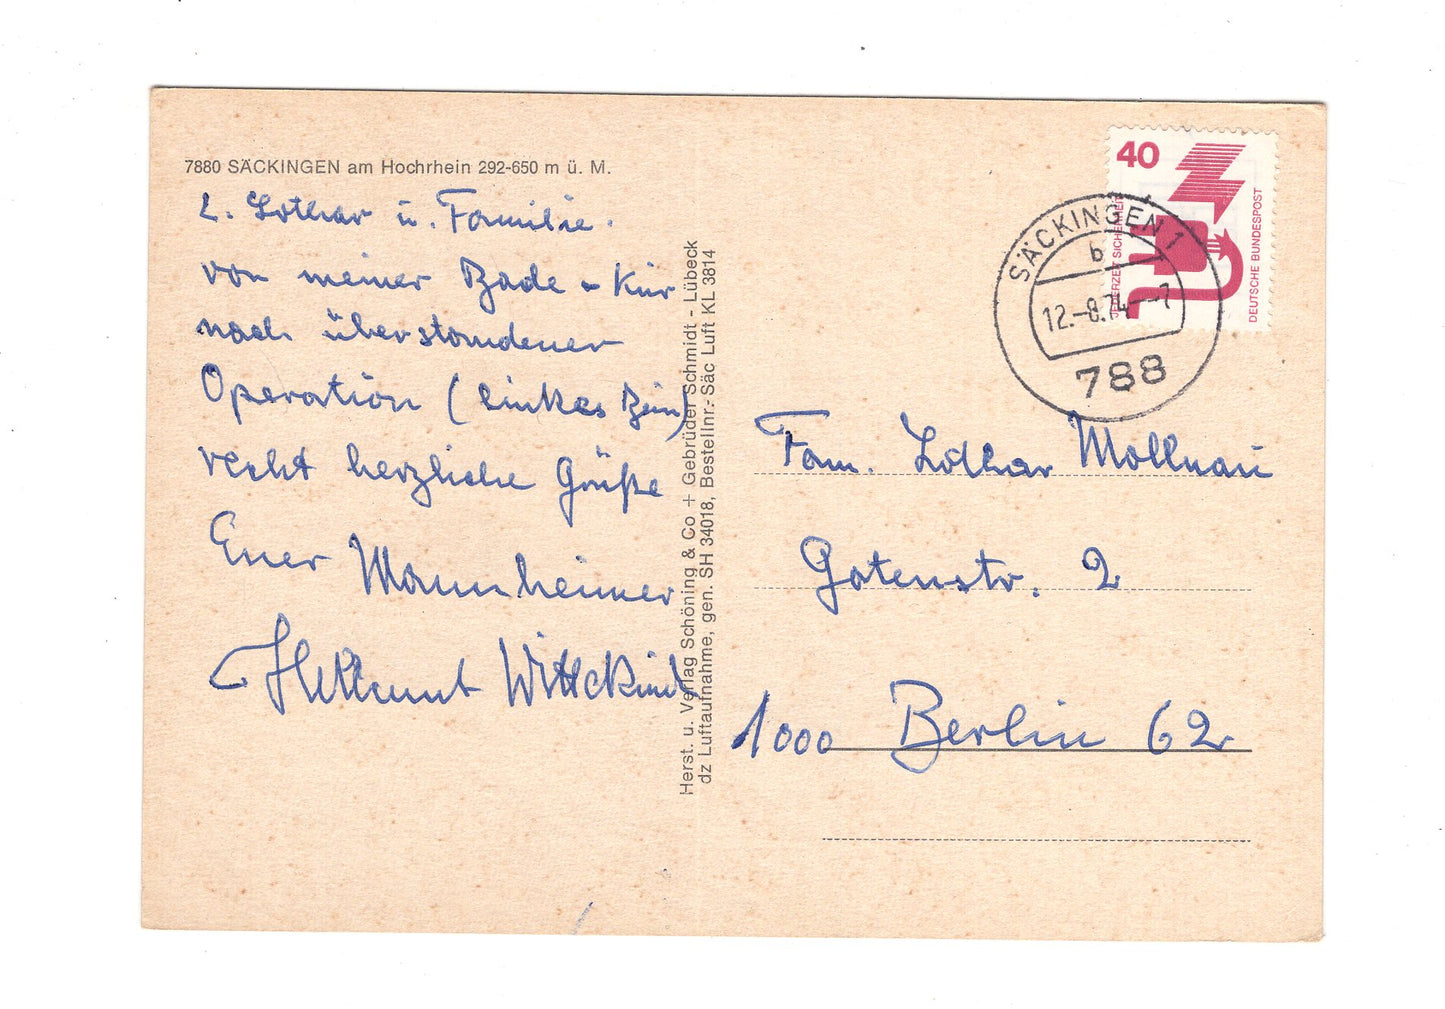 7880 SÄCKINGEN am Hochrhein 292-650 m ü. M.
L. Lothar u. Familie.
von meiner Bade-Kur
nach überstandener
Operation (linkes Bein)
recht herzliche Grüße
Euer Mannheimer
Hellmut Wittekind
Herst. u. Verlag Schöning & Co + Gebrüder Schmidt - Lübeck
dz Luftaufnahme, gen. SH 34018, Bestellnr.- Säc Luft KL 3814
40
JEDERZEIT SICHERHEIT
DEUTSCHE BUNDESPOST
SÄCKINGEN 1
b
12.-8.74--7
788
Fam. Lothar Mollnau
Gotenstr. 2
1000 Berlin 62